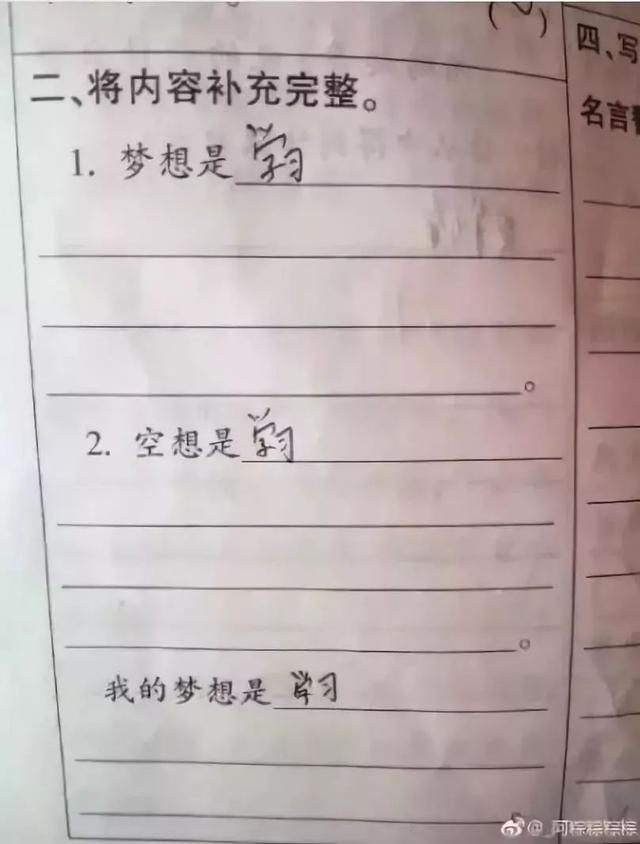 二、将内容补充完整。
1. 梦想是学习
。
2. 空想是学习
。
我的梦想是学习
四、写
名言
@_阿粽粽粽粽